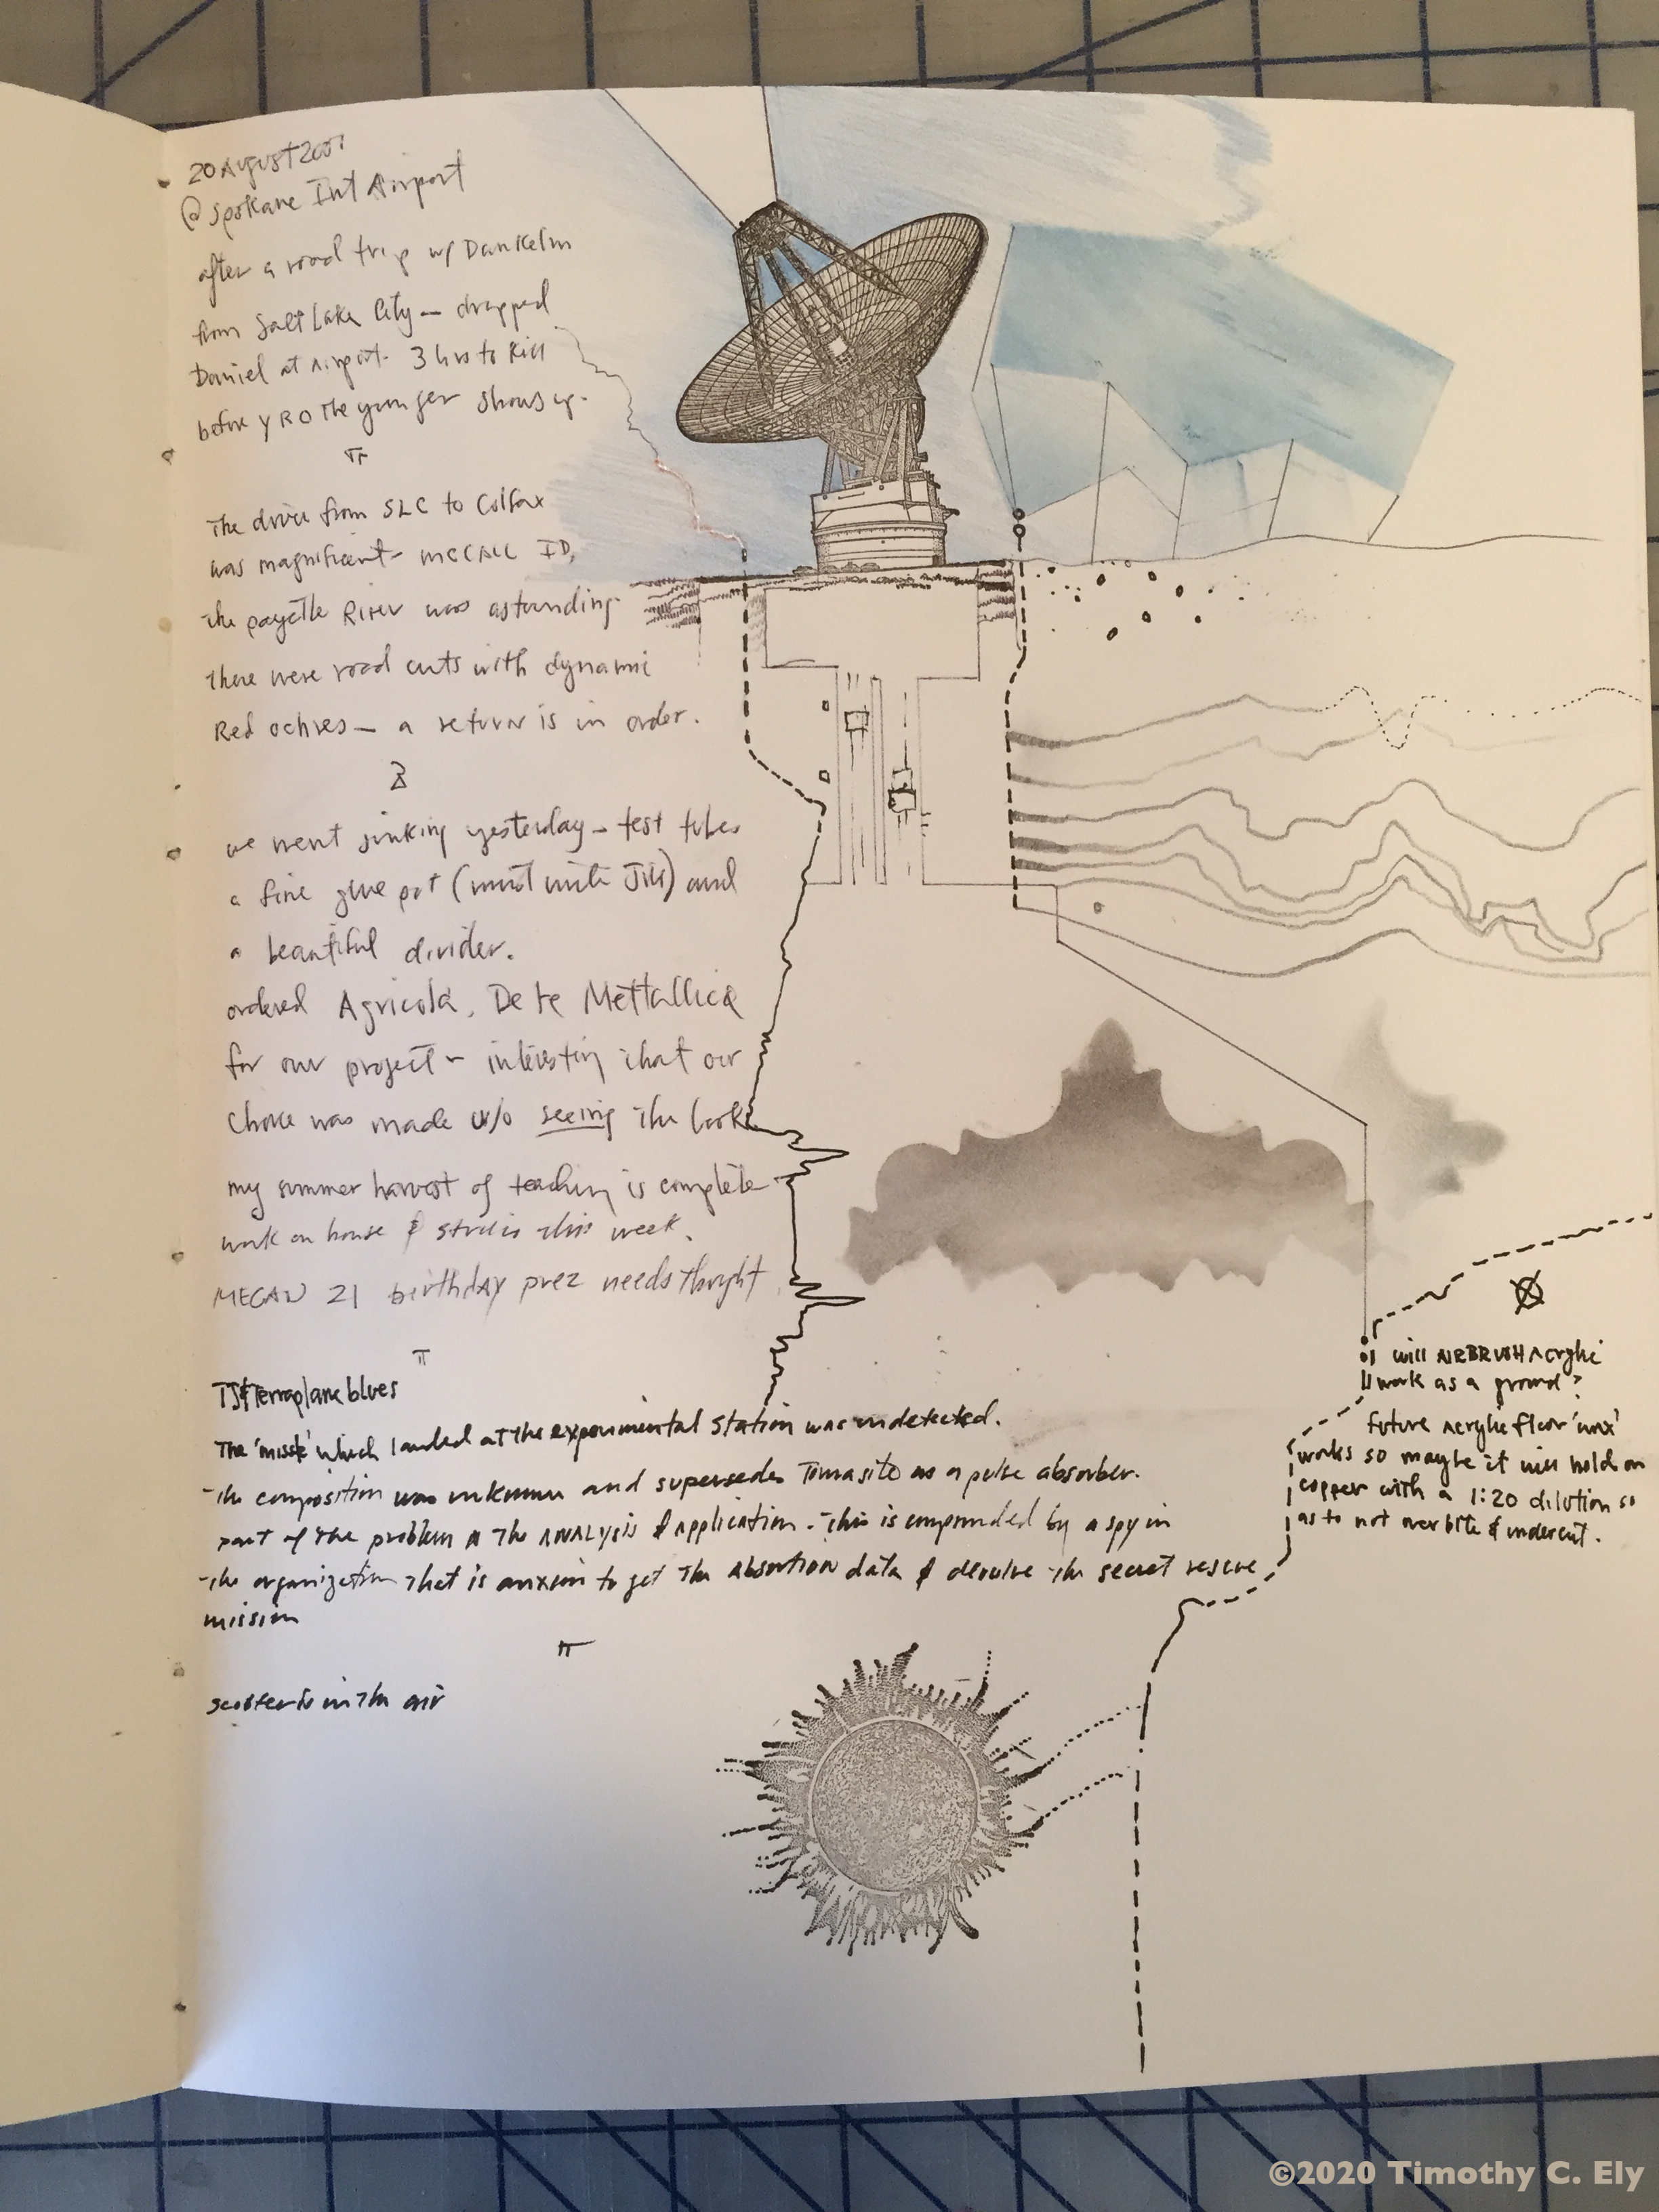 20 August 2001
@ Spokane Int Airport
after a road trip w/ Dan Kelm
from Salt Lake City – dropped
Daniel at Airport. 3 hrs to kill
before YRO the younger shows up.
π
The drive from SLC to Colfax
was magnificent – MCCALL ID,
The payette River was astounding.
There were road cuts with dynamic
Red ochres – a return is in order.
we went junking yesterday – test tubes
a fine glue pot (must write Jill) and
a beautiful divider.
ordered Agricola, De Re Mettallica
for our project – interesting that our
choice was made w/o seeing the book
my summer harvest of teaching is complete
work on house & studio this week.
MEGAN 21 birthday prez needs thought
π
TS&Terraplane blues
The 'missle' which landed at the experimental station was undetected.
The composition was unknown and supersedes as a pulse absorber.
part of the problem is the ANALYSIS & application. This is compounded by a spy in
the organization that is anxious to get the Absortion data & the secret rescue
mission
π
scooter is in the air
will AIRBRUSH Acrylic
work as a ground?
future acrylic floor 'wax'
works so maybe it will hold on
copper with a 1:20 dilution so
as to not over bite & undercut.
©2020 Timothy C. Ely